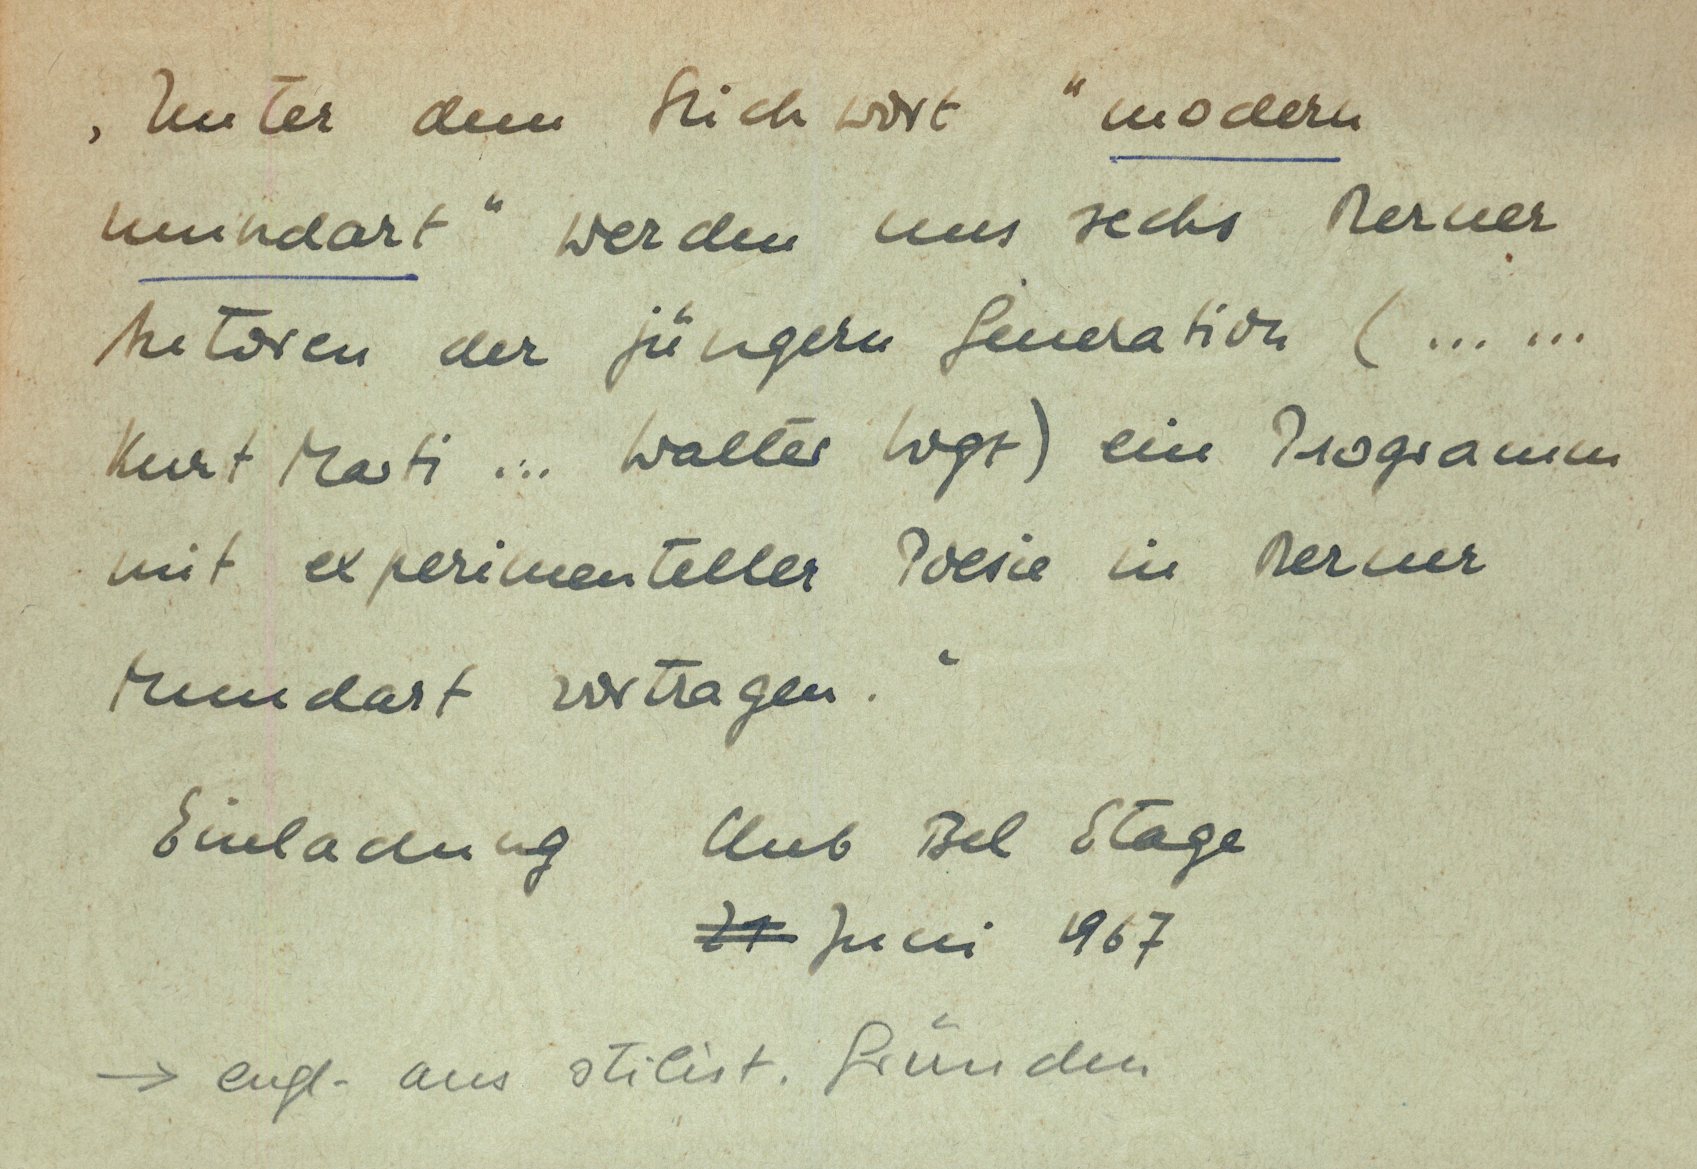 , Unter dem Stichwort "modern
mundart" werden uns sechs Berner
Autoren der jüngern Generation (... ...
Kurt Marti ... Walter Vogt) ein Programm
mit experimenteller Poesie in Berner
Mundart vortragen. "
Einladung Club Bel Etage
21 Juni 1967
→ engl. aus stilist. Gründen